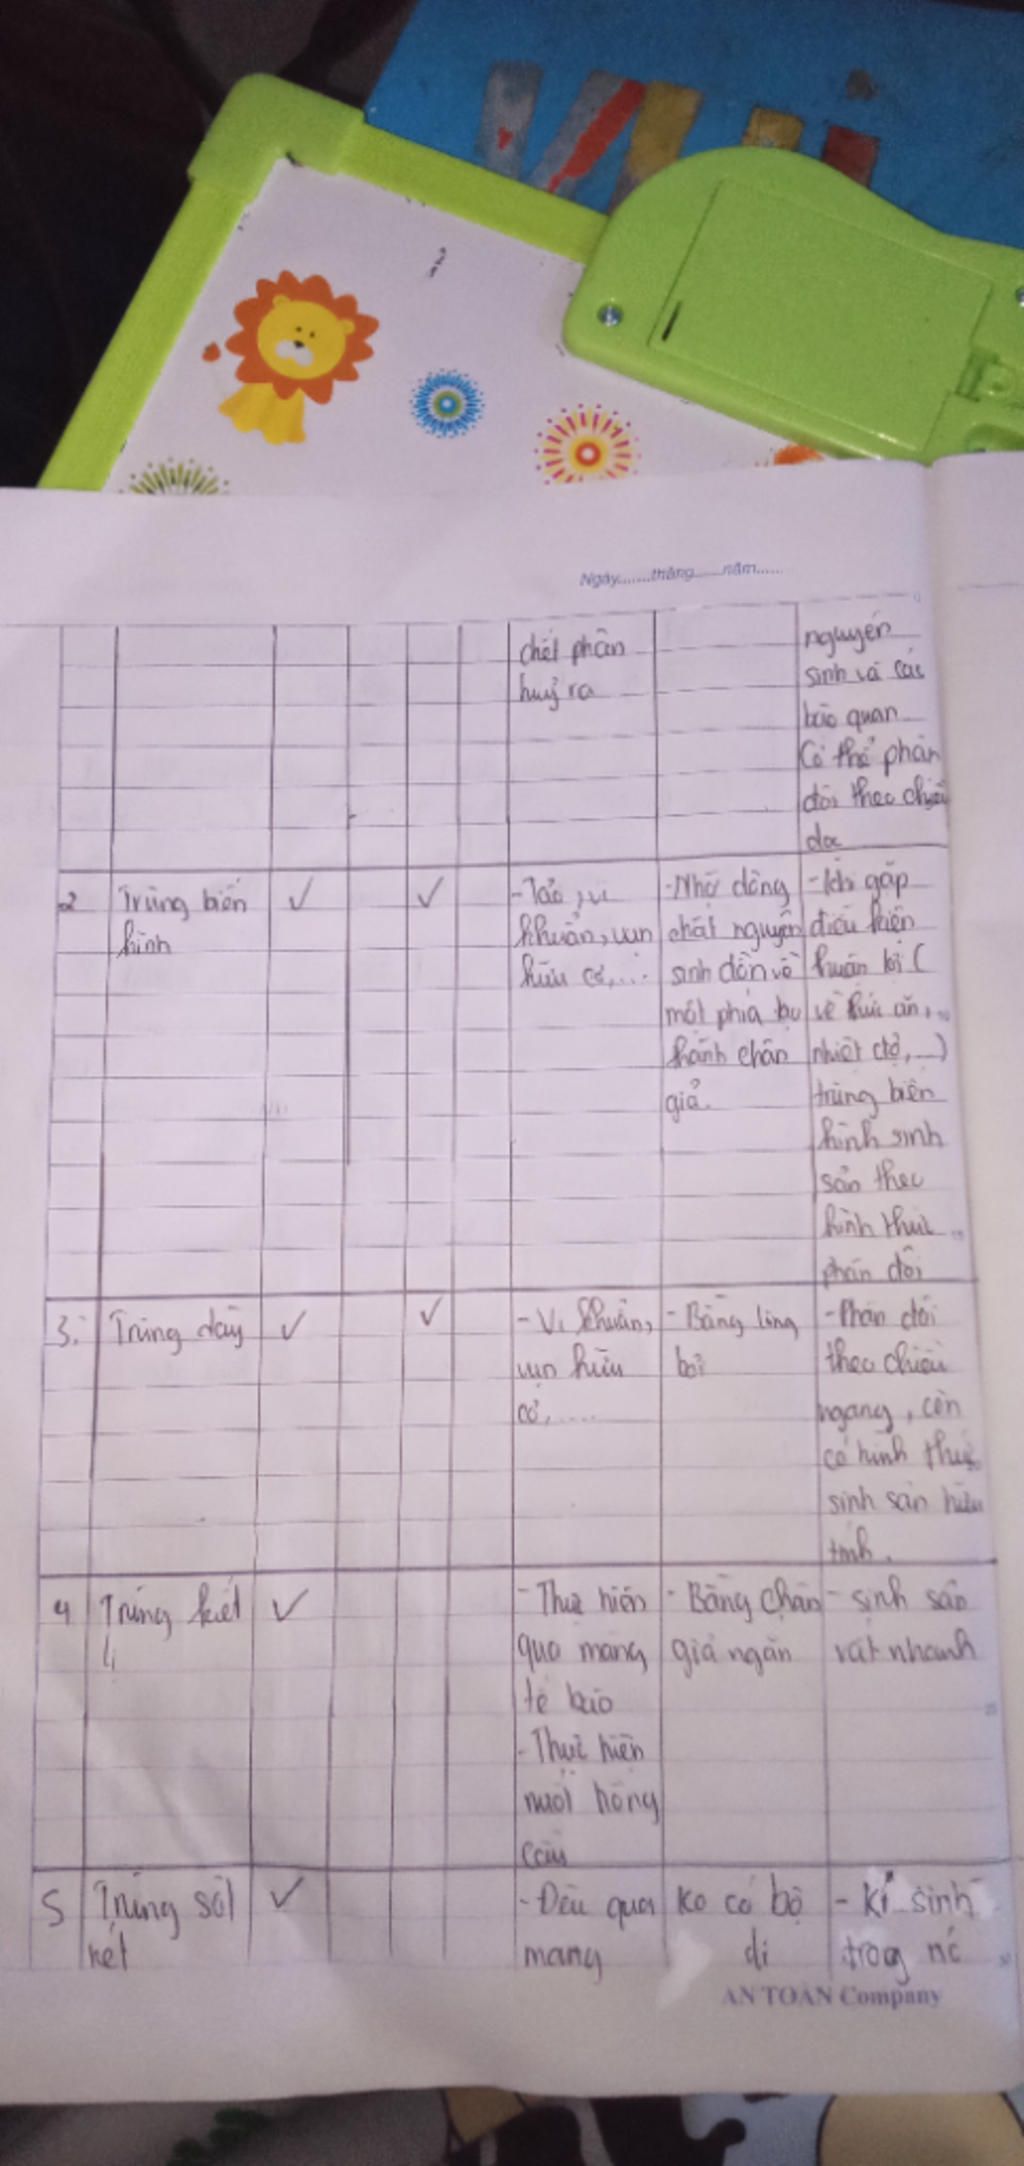 Ngày.......tháng.......năm......
chết phân
huỷ ra
nguyên
sinh và các
bào quan
Có thể phân
đôi theo chiều
dọc
2
Trùng biến
hình
✓
✓
- Tảo, vi
khuẩn, vụn
hữu cơ,...
- Nhờ dòng
chất nguyên
sinh dồn về
một phía tạo
thành chân
giả.
- Khi gặp
điều kiện
thuận lợi (
về thức ăn,
nhiệt độ,...)
trùng biến
hình sinh
sản theo
hình thức
phân đôi
3.
Trùng dày
✓
✓
- Vi khuẩn,
vụn hữu
cơ,....
- Bằng lông
bơi
- Phân đôi
theo chiều
ngang, còn
có hình thức
sinh sản hữu
tính.
4
Trùng kiết
lị
✓
- Thực hiện
qua màng
tế bào
- Thực hiện
nuốt hồng
cầu
- Bằng chân
giả ngắn
- sinh sản
rất nhanh
5
Trùng sốt
rét
✓
- Đều qua
màng
Ko có bộ
di
- Kí sinh
trog nc
AN TOÀN Company